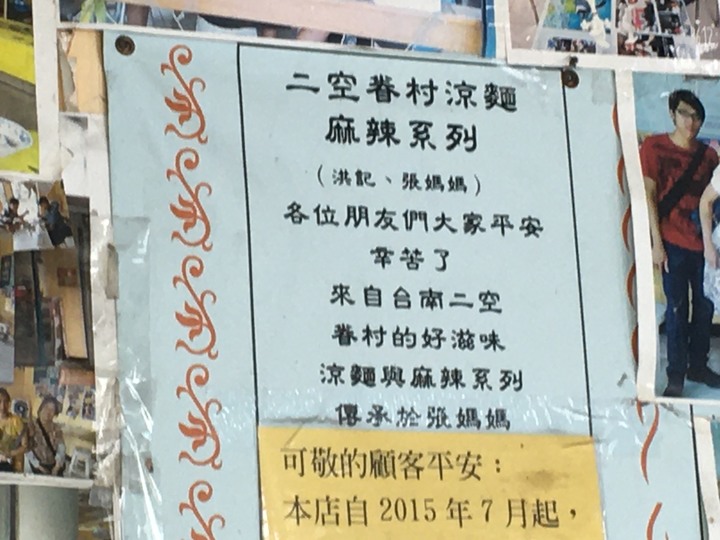 二空眷村涼麵
麻辣系列
（洪記、張媽媽）
各位朋友們大家平安
辛苦了
來自台南二空
眷村的好滋味
涼麵與麻辣系列
傳承於張媽媽
可敬的顧客平安：
本店自2015年7月起，